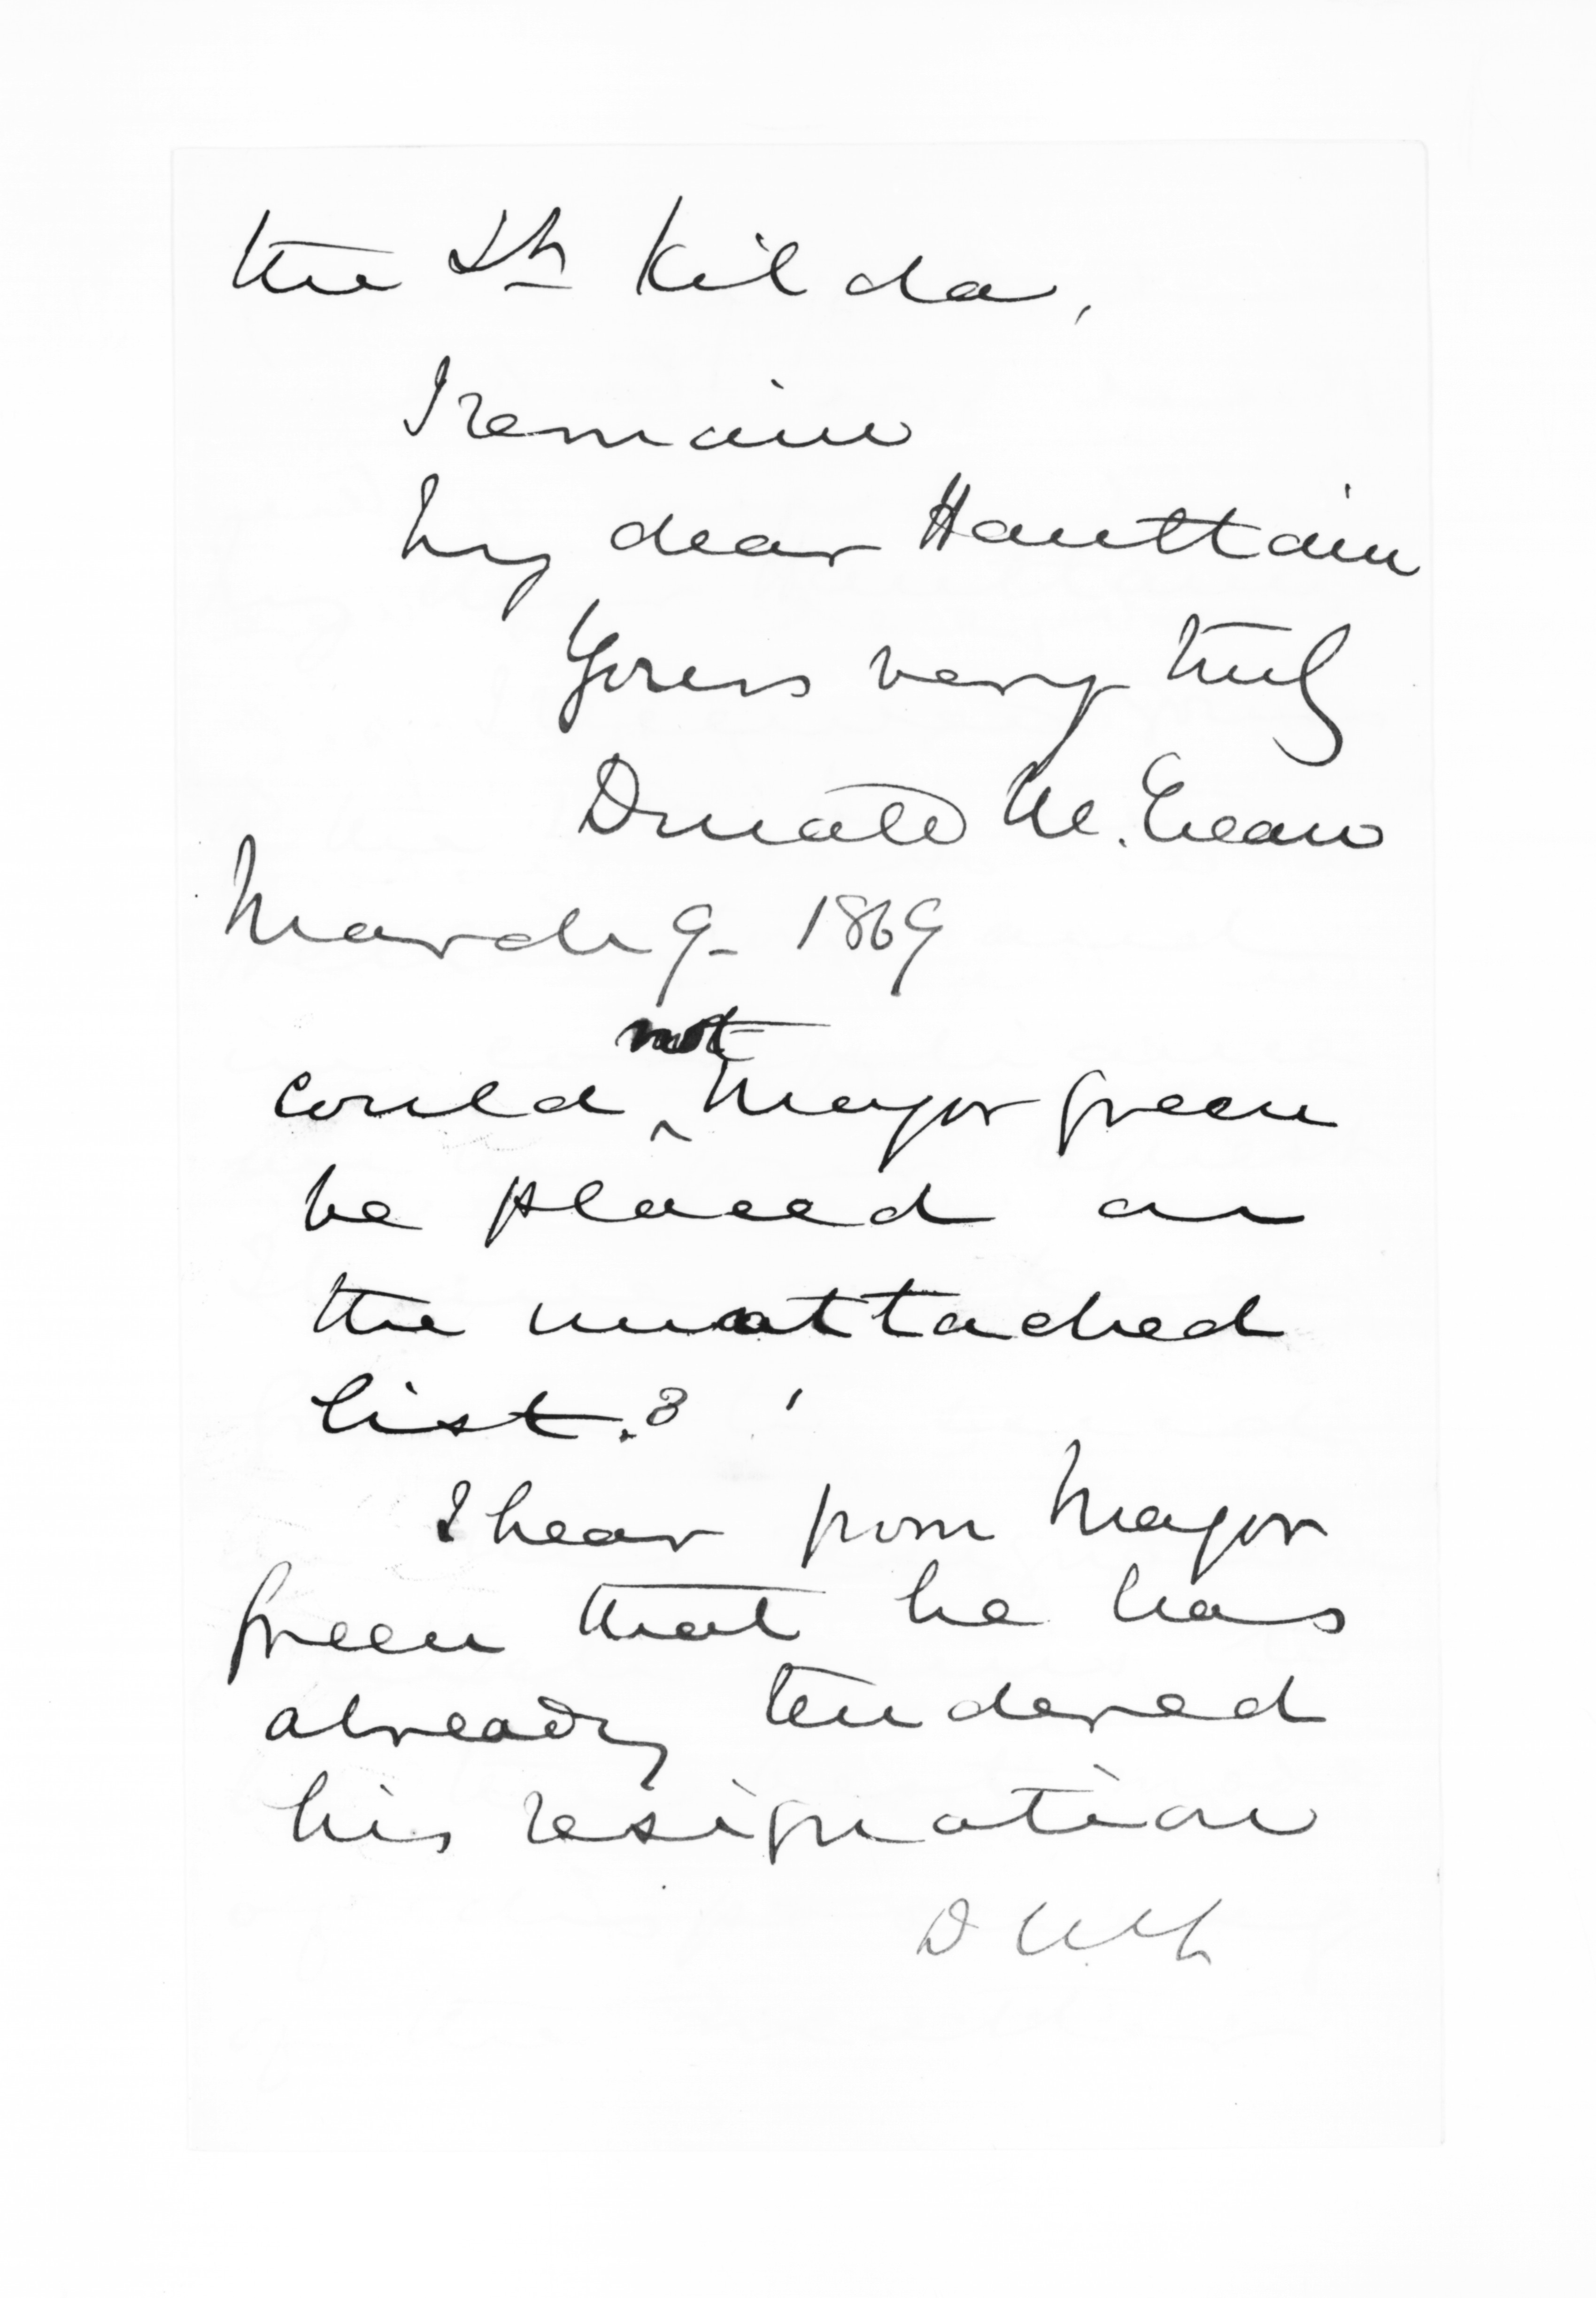 the St Kilda,
I remain
My dear Haultain
Yours very truly
Donald McLean
March 9 - 1869
not
could ^ Major Green
be placed on
the unattached
list.?
I hear from Major
Green that he has
already tendered
his resignation
D McL